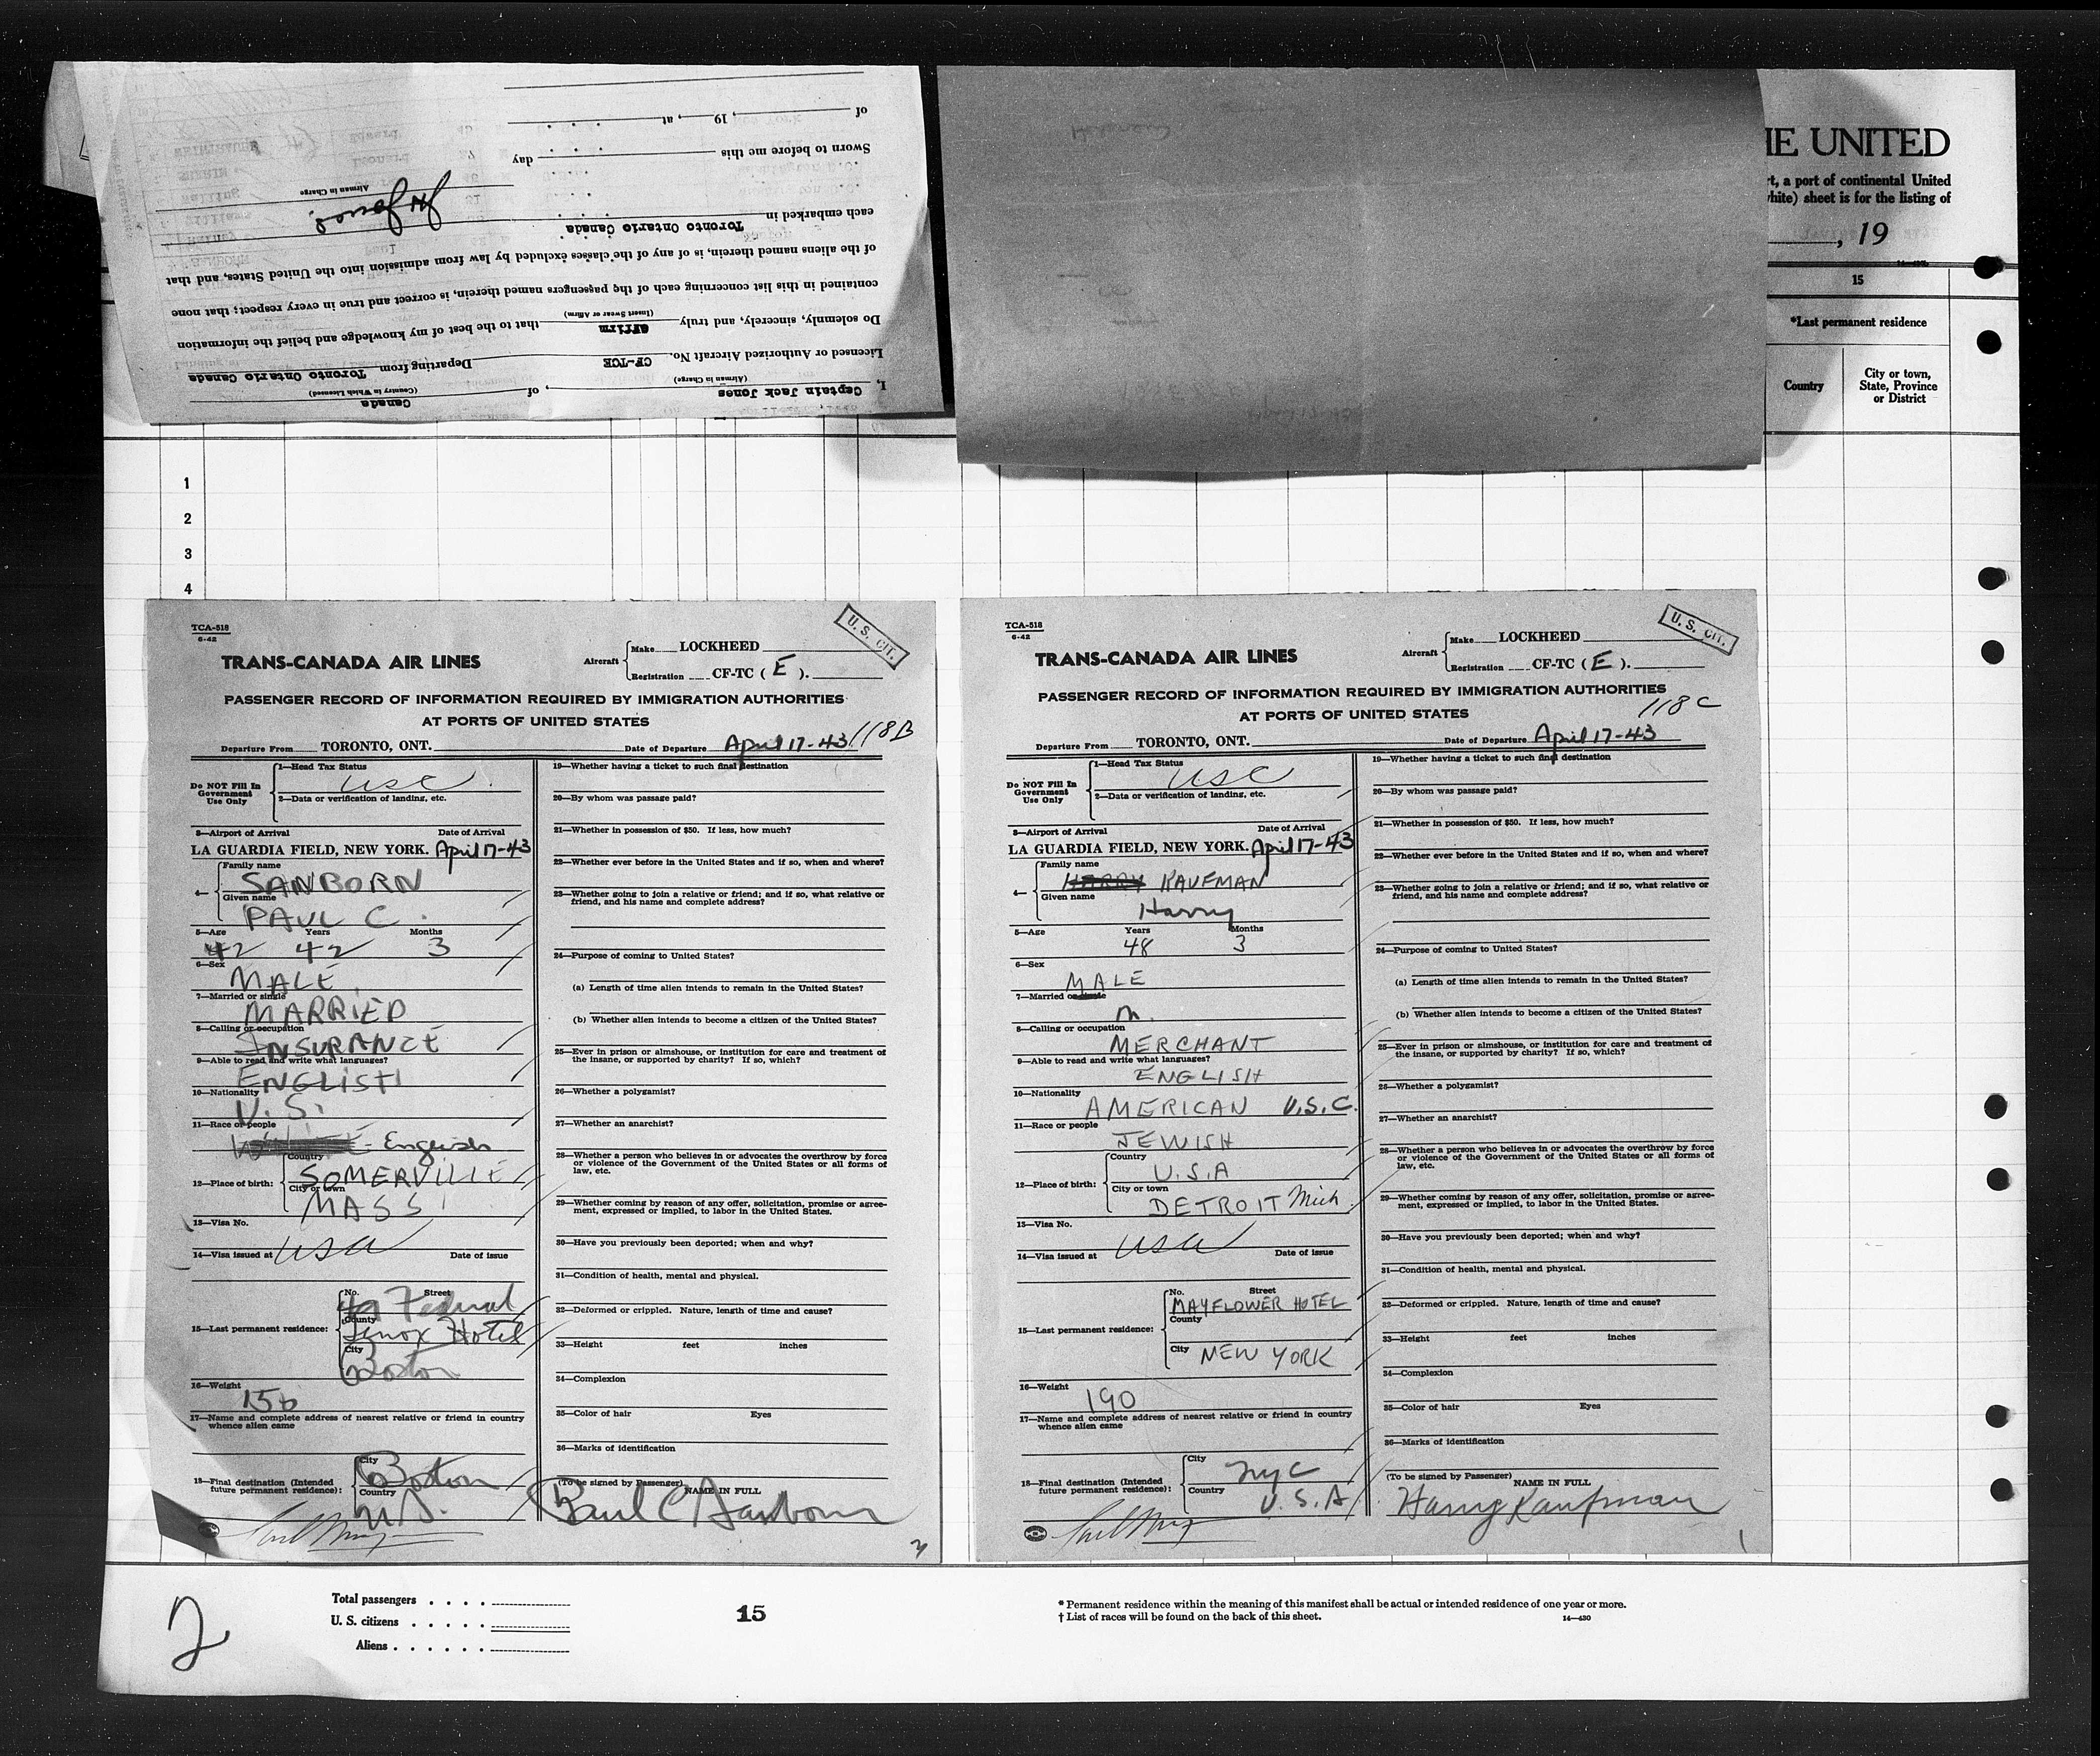 I, Captain Jack Jones, of Canada
(Airman in Charge) (Country in Which Licensed)
Licensed or Authorized Aircraft No. CF-TCE Departing from Toronto Ontario Canada
Do solemnly, sincerely, and truly affirm that to the best of my knowledge and belief the information
(Insert Swear or Affirm)
contained in this list concerning each of the passengers named therein, is correct and true in every respect; that none
of the aliens named therein, is of any of the classes excluded by law from admission into the United States, and that
each embarked in Toronto Ontario Canada
JH Jones.
Airman in Charge
Sworn to before me this day
of , 19 , at
HE UNITED
rt, a port of continental United
white) sheet is for the listing of
, 19
15
*Last permanent residence
Country
City or town,
State, Province
or District
1
2
3
4
TCA-518
6-42
U. S. CIT.
TRANS-CANADA AIR LINES
Aircraft
Make LOCKHEED
Registration CF-TC ( E ).
PASSENGER RECORD OF INFORMATION REQUIRED BY IMMIGRATION AUTHORITIES
AT PORTS OF UNITED STATES
118B
Departure From TORONTO, ONT. Date of Departure April 17-43
Do NOT Fill In
Government
Use Only
1—Head Tax Status
USC
2—Data or verification of landing, etc.
3—Airport of Arrival Date of Arrival
LA GUARDIA FIELD, NEW YORK. April 17-43
4—
Family name
SANBORN
Given name
PAUL C.
5—Age Years Months
42 42 3
6—Sex
MALE
7—Married or single
MARRIED
8—Calling or occupation
INSURANCE
9—Able to read and write what languages?
ENGLISH
10—Nationality
U. S.
11—Race or people
English
12—Place of birth:
Country
SOMERVILLE
City or town
MASS.
13—Visa No.
14—Visa issued at USA Date of issue
15—Last permanent residence:
No. Street
49 Federal
County
Lenox Hotel
City
Boston
16—Weight
156
17—Name and complete address of nearest relative or friend in country
whence alien came
18—Final destination (Intended
future permanent residence):
City
Boston
Country
U.S.
19—Whether having a ticket to such final destination
20—By whom was passage paid?
21—Whether in possession of $50. If less, how much?
22—Whether ever before in the United States and if so, when and where?
23—Whether going to join a relative or friend; and if so, what relative or
friend, and his name and complete address?
24—Purpose of coming to United States?
(a) Length of time alien intends to remain in the United States?
(b) Whether alien intends to become a citizen of the United States?
25—Ever in prison or almshouse, or institution for care and treatment of
the insane, or supported by charity? If so, which?
26—Whether a polygamist?
27—Whether an anarchist?
28—Whether a person who believes in or advocates the overthrow by force
or violence of the Government of the United States or all forms of
law, etc.
29—Whether coming by reason of any offer, solicitation, promise or agree-
ment, expressed or implied, to labor in the United States.
30—Have you previously been deported; when and why?
31—Condition of health, mental and physical.
32—Deformed or crippled. Nature, length of time and cause?
33—Height feet inches
34—Complexion
35—Color of hair Eyes
36—Marks of identification
(To be signed by Passenger) NAME IN FULL
Paul C Sanborn
TCA-518
6-42
U. S. CIT.
TRANS-CANADA AIR LINES
Aircraft
Make LOCKHEED
Registration CF-TC ( E ).
PASSENGER RECORD OF INFORMATION REQUIRED BY IMMIGRATION AUTHORITIES
AT PORTS OF UNITED STATES
118 C
Departure From TORONTO, ONT. Date of Departure April 17-43
Do NOT Fill In
Government
Use Only
1—Head Tax Status
USC
2—Data or verification of landing, etc.
3—Airport of Arrival Date of Arrival
LA GUARDIA FIELD, NEW YORK. April 17-43
4—
Family name
HARRY KAUFMAN
Given name
Harry
5—Age Years Months
48 3
6—Sex
MALE
7—Married or single
M.
8—Calling or occupation
MERCHANT
9—Able to read and write what languages?
ENGLISH
10—Nationality
AMERICAN U.S.C.
11—Race or people
JEWISH
12—Place of birth:
Country
U.S.A
City or town
DETROIT Mich
13—Visa No.
14—Visa issued at USA Date of issue
15—Last permanent residence:
No. Street
MAYFLOWER HOTEL
County
City NEW YORK
16—Weight
190
17—Name and complete address of nearest relative or friend in country
whence alien came
18—Final destination (Intended
future permanent residence):
City
NYC
Country
U.S.A
19—Whether having a ticket to such final destination
20—By whom was passage paid?
21—Whether in possession of $50. If less, how much?
22—Whether ever before in the United States and if so, when and where?
23—Whether going to join a relative or friend; and if so, what relative or
friend, and his name and complete address?
24—Purpose of coming to United States?
(a) Length of time alien intends to remain in the United States?
(b) Whether alien intends to become a citizen of the United States?
25—Ever in prison or almshouse, or institution for care and treatment of
the insane, or supported by charity? If so, which?
26—Whether a polygamist?
27—Whether an anarchist?
28—Whether a person who believes in or advocates the overthrow by force
or violence of the Government of the United States or all forms of
law, etc.
29—Whether coming by reason of any offer, solicitation, promise or agree-
ment, expressed or implied, to labor in the United States.
30—Have you previously been deported; when and why?
31—Condition of health, mental and physical.
32—Deformed or crippled. Nature, length of time and cause?
33—Height feet inches
34—Complexion
35—Color of hair Eyes
36—Marks of identification
(To be signed by Passenger) NAME IN FULL
Harry Kaufman
1
2
Total passengers
U. S. citizens
Aliens
15
* Permanent residence within the meaning of this manifest shall be actual or intended residence of one year or more.
† List of races will be found on the back of this sheet.
14—430